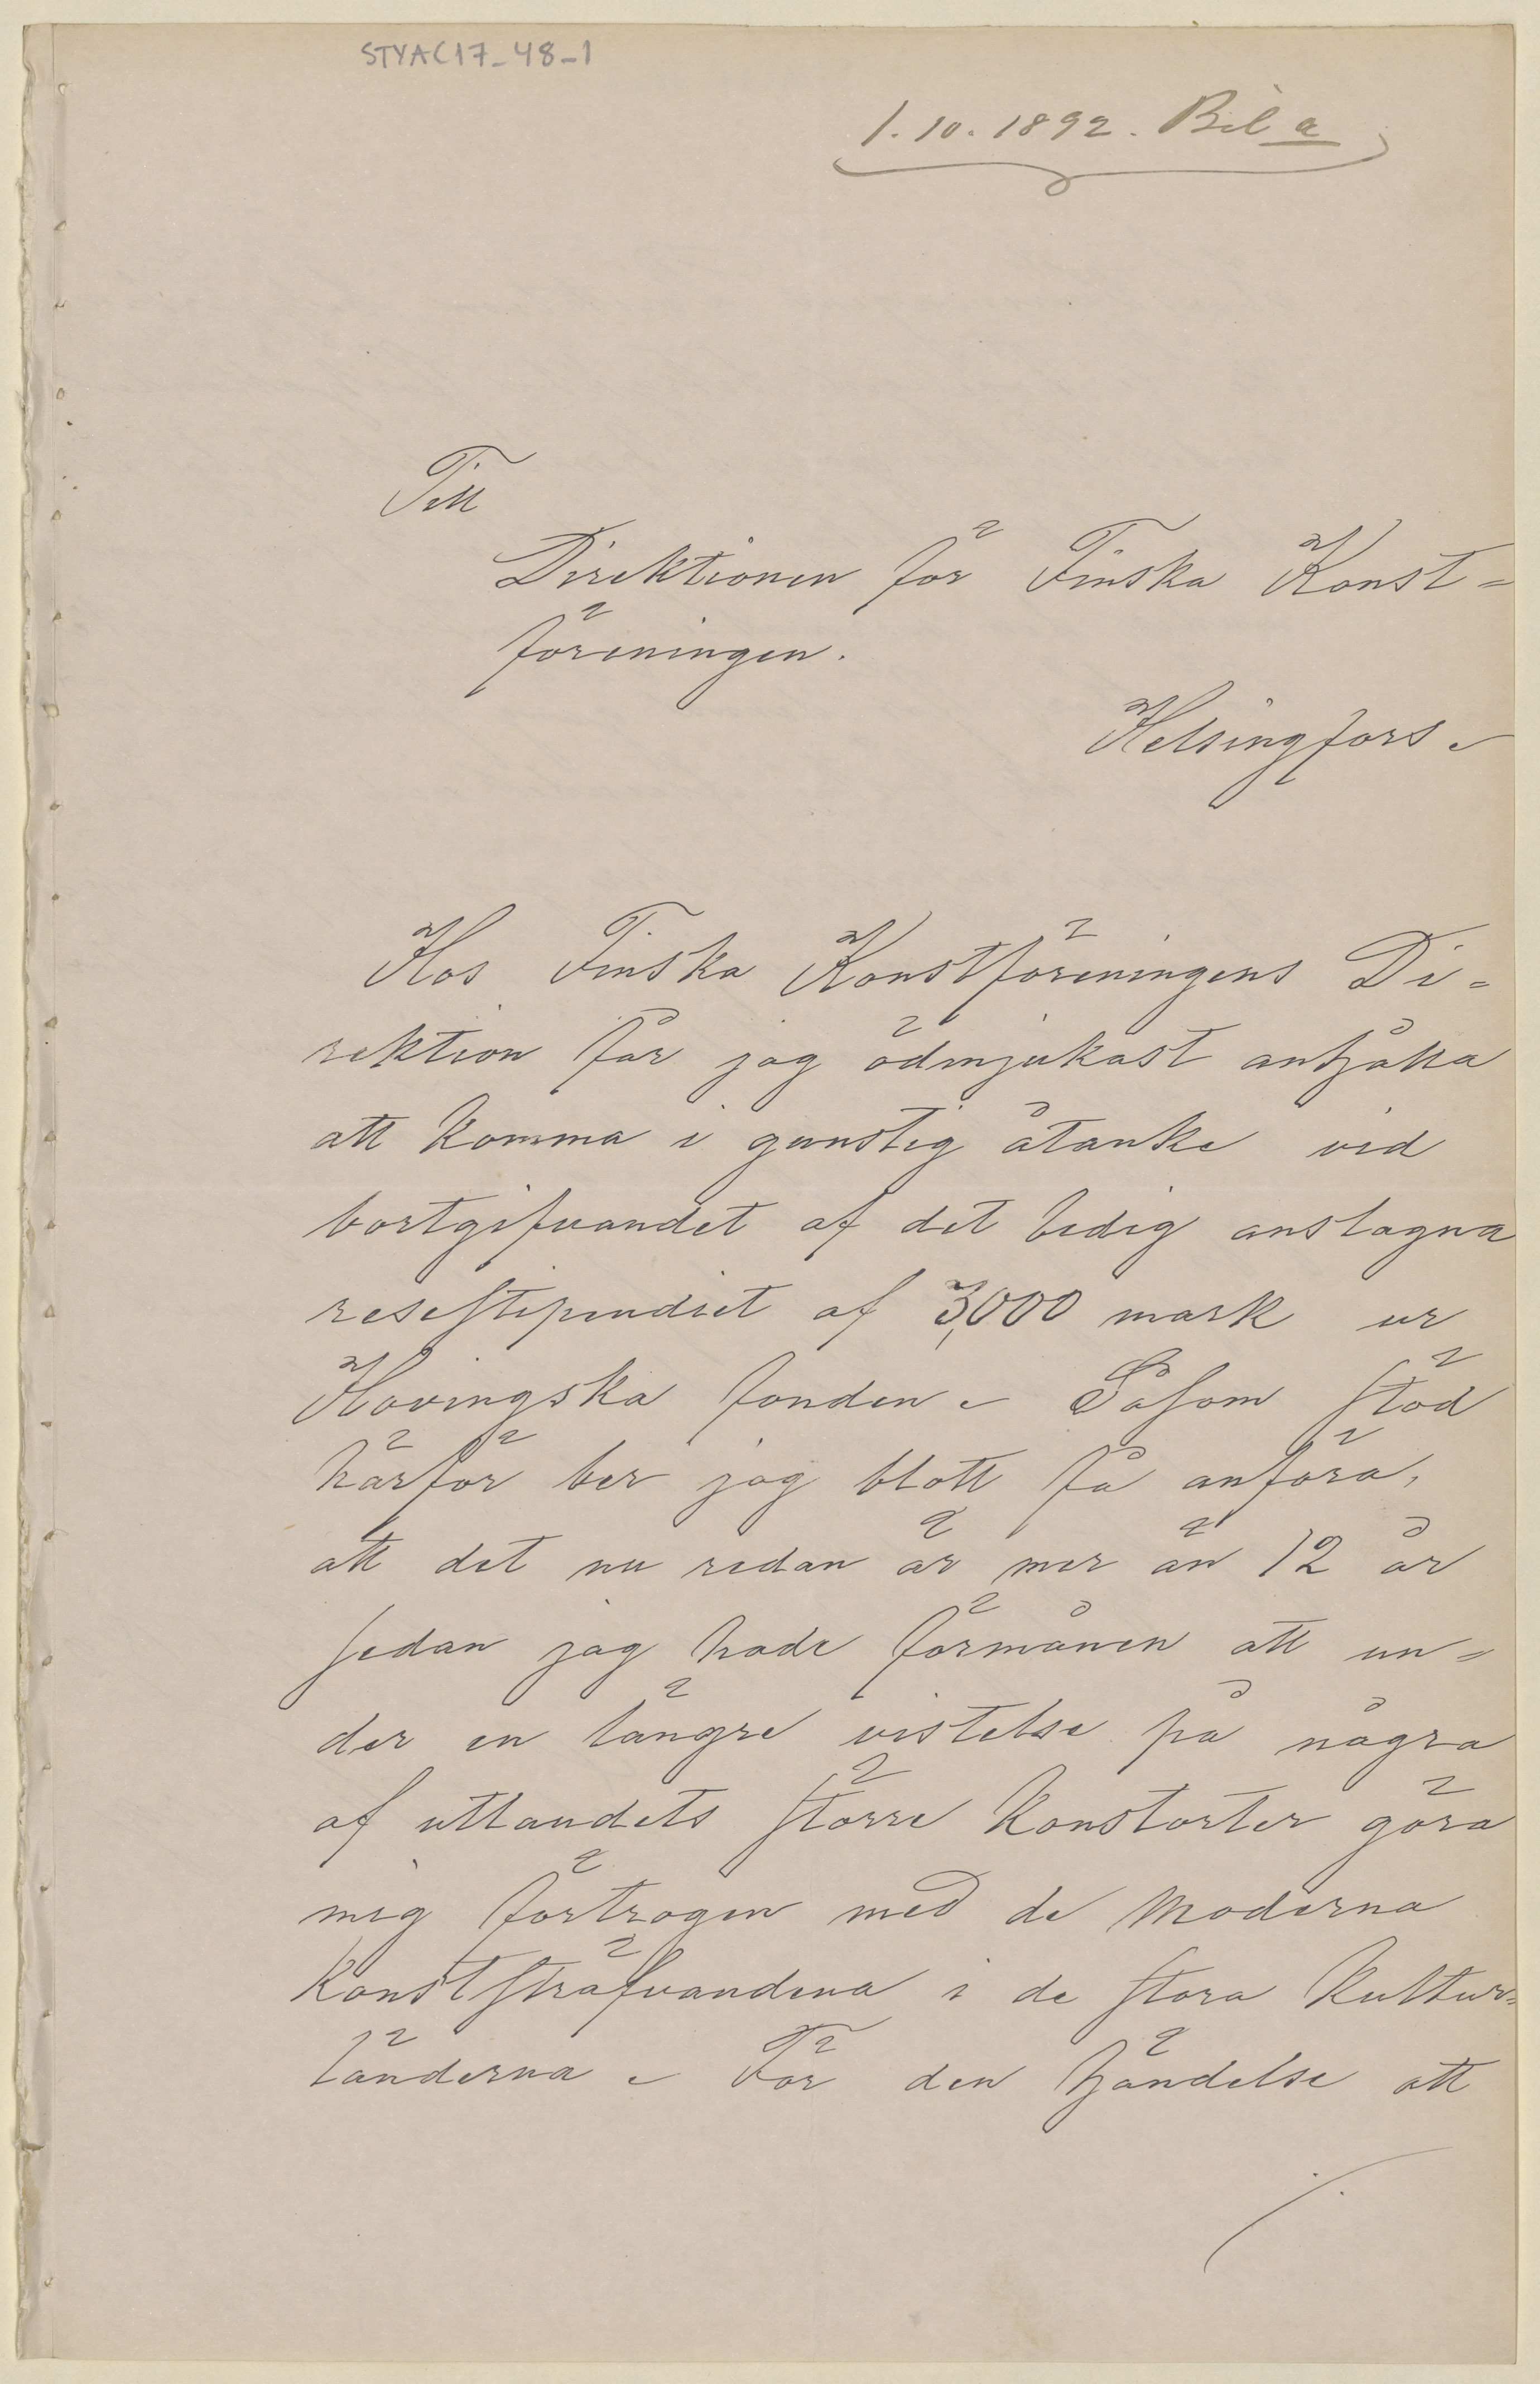 STYAC17_48_1
1.10.1892. Bil a
Till
Direktionen för Finska Konst=
föreningen.
Helsingfors.
Hos Finska Konstföreningens Di=
rektion får jag ödmjukast anhålla
att komma i gunstig åtanke vid
bortgifvandet af det ledig anslagna
resestipendiet af 3,000 mark ur
Hovingska fonden. Såsom stöd
härför ber jag blott få anföra,
att det nu redan är mer än 12 år
sedan jag hade förmånen att un=
der en längre vistelse på några
af utlandets större konstorter göra
mig förtrogen med de moderna
konststräfvandena i de stora kultur=
länderna. För den händelse att
./.